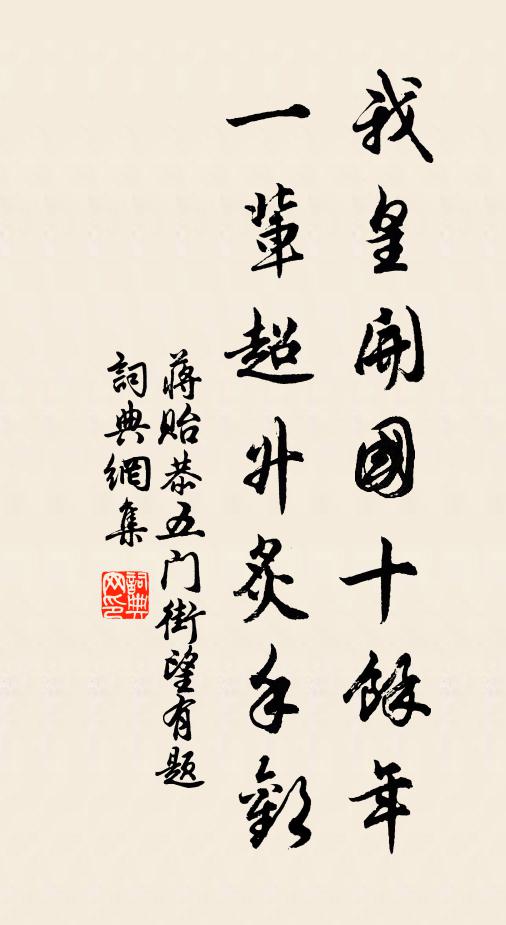 我皇開國十餘年
一輩超升炙手歡
蔣貽恭五门街望有題
詞典網集
詞典网印